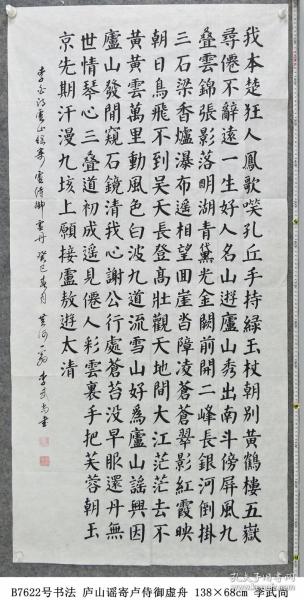 我本楚狂人鳳歌笑孔丘手持緑玉杖朝別黃鶴樓五嶽
尋僊不辭遠一生好入名山遊廬山秀出南斗傍屏風九
疊雲錦張影落明湖青黛光金闕前開二峰長銀河倒掛
三石梁香爐瀑布遥相望回崖沓障凌蒼蒼翠影紅霞映
朝日鳥飛不到吴天長登高壯觀天地間大江茫茫去不
黃雲萬里動風色白波九道流雪山好爲廬山謠興因
廬山發閒窺石鏡清我心謝公行處蒼苔没早服還丹無
世情琴心三疊道初成遥見僊人彩雲裏手把芙蓉朝玉
京先期汗漫九垓上願接盧敖遊太清
李白詩廬山謠寄盧侍御虛舟 癸巳春月 黃河一翁 李武尚書
B7622号书法 庐山谣寄卢侍御虚舟 138×68cm 李武尚